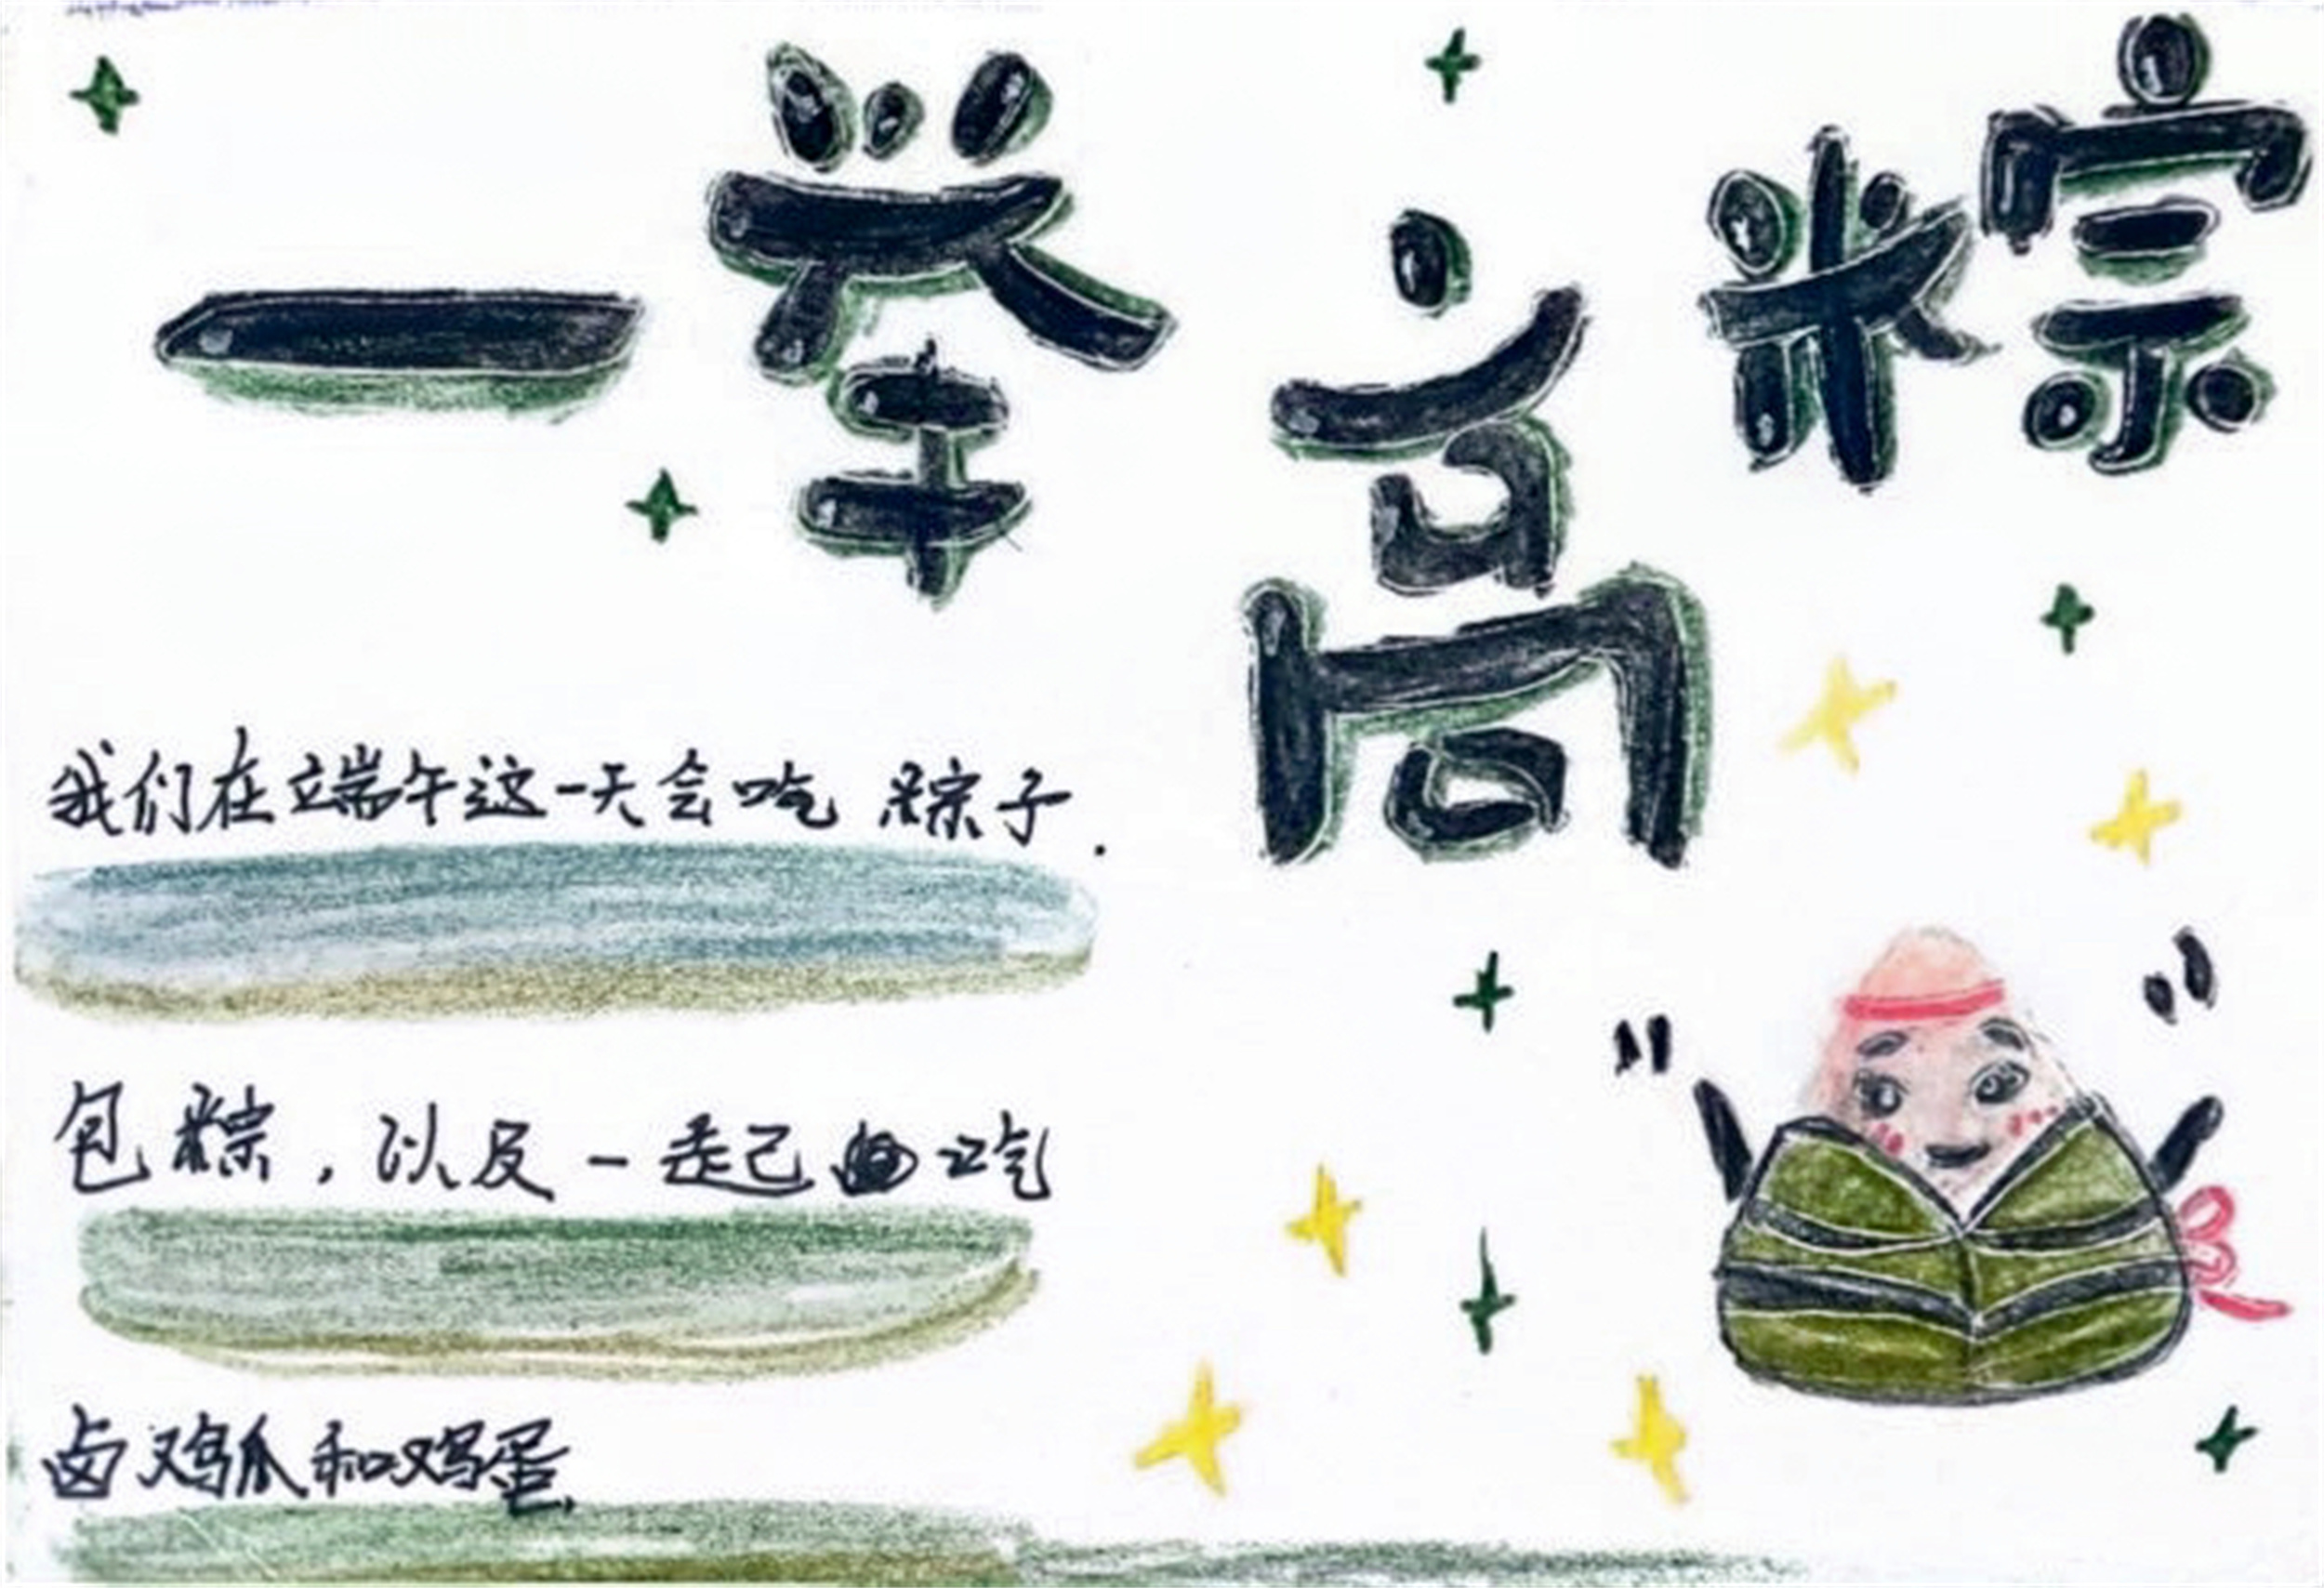 一举高粽
我们在端午这一天会吃粽子.
包粽,以及一起吃
卤鸡爪和鸡蛋.